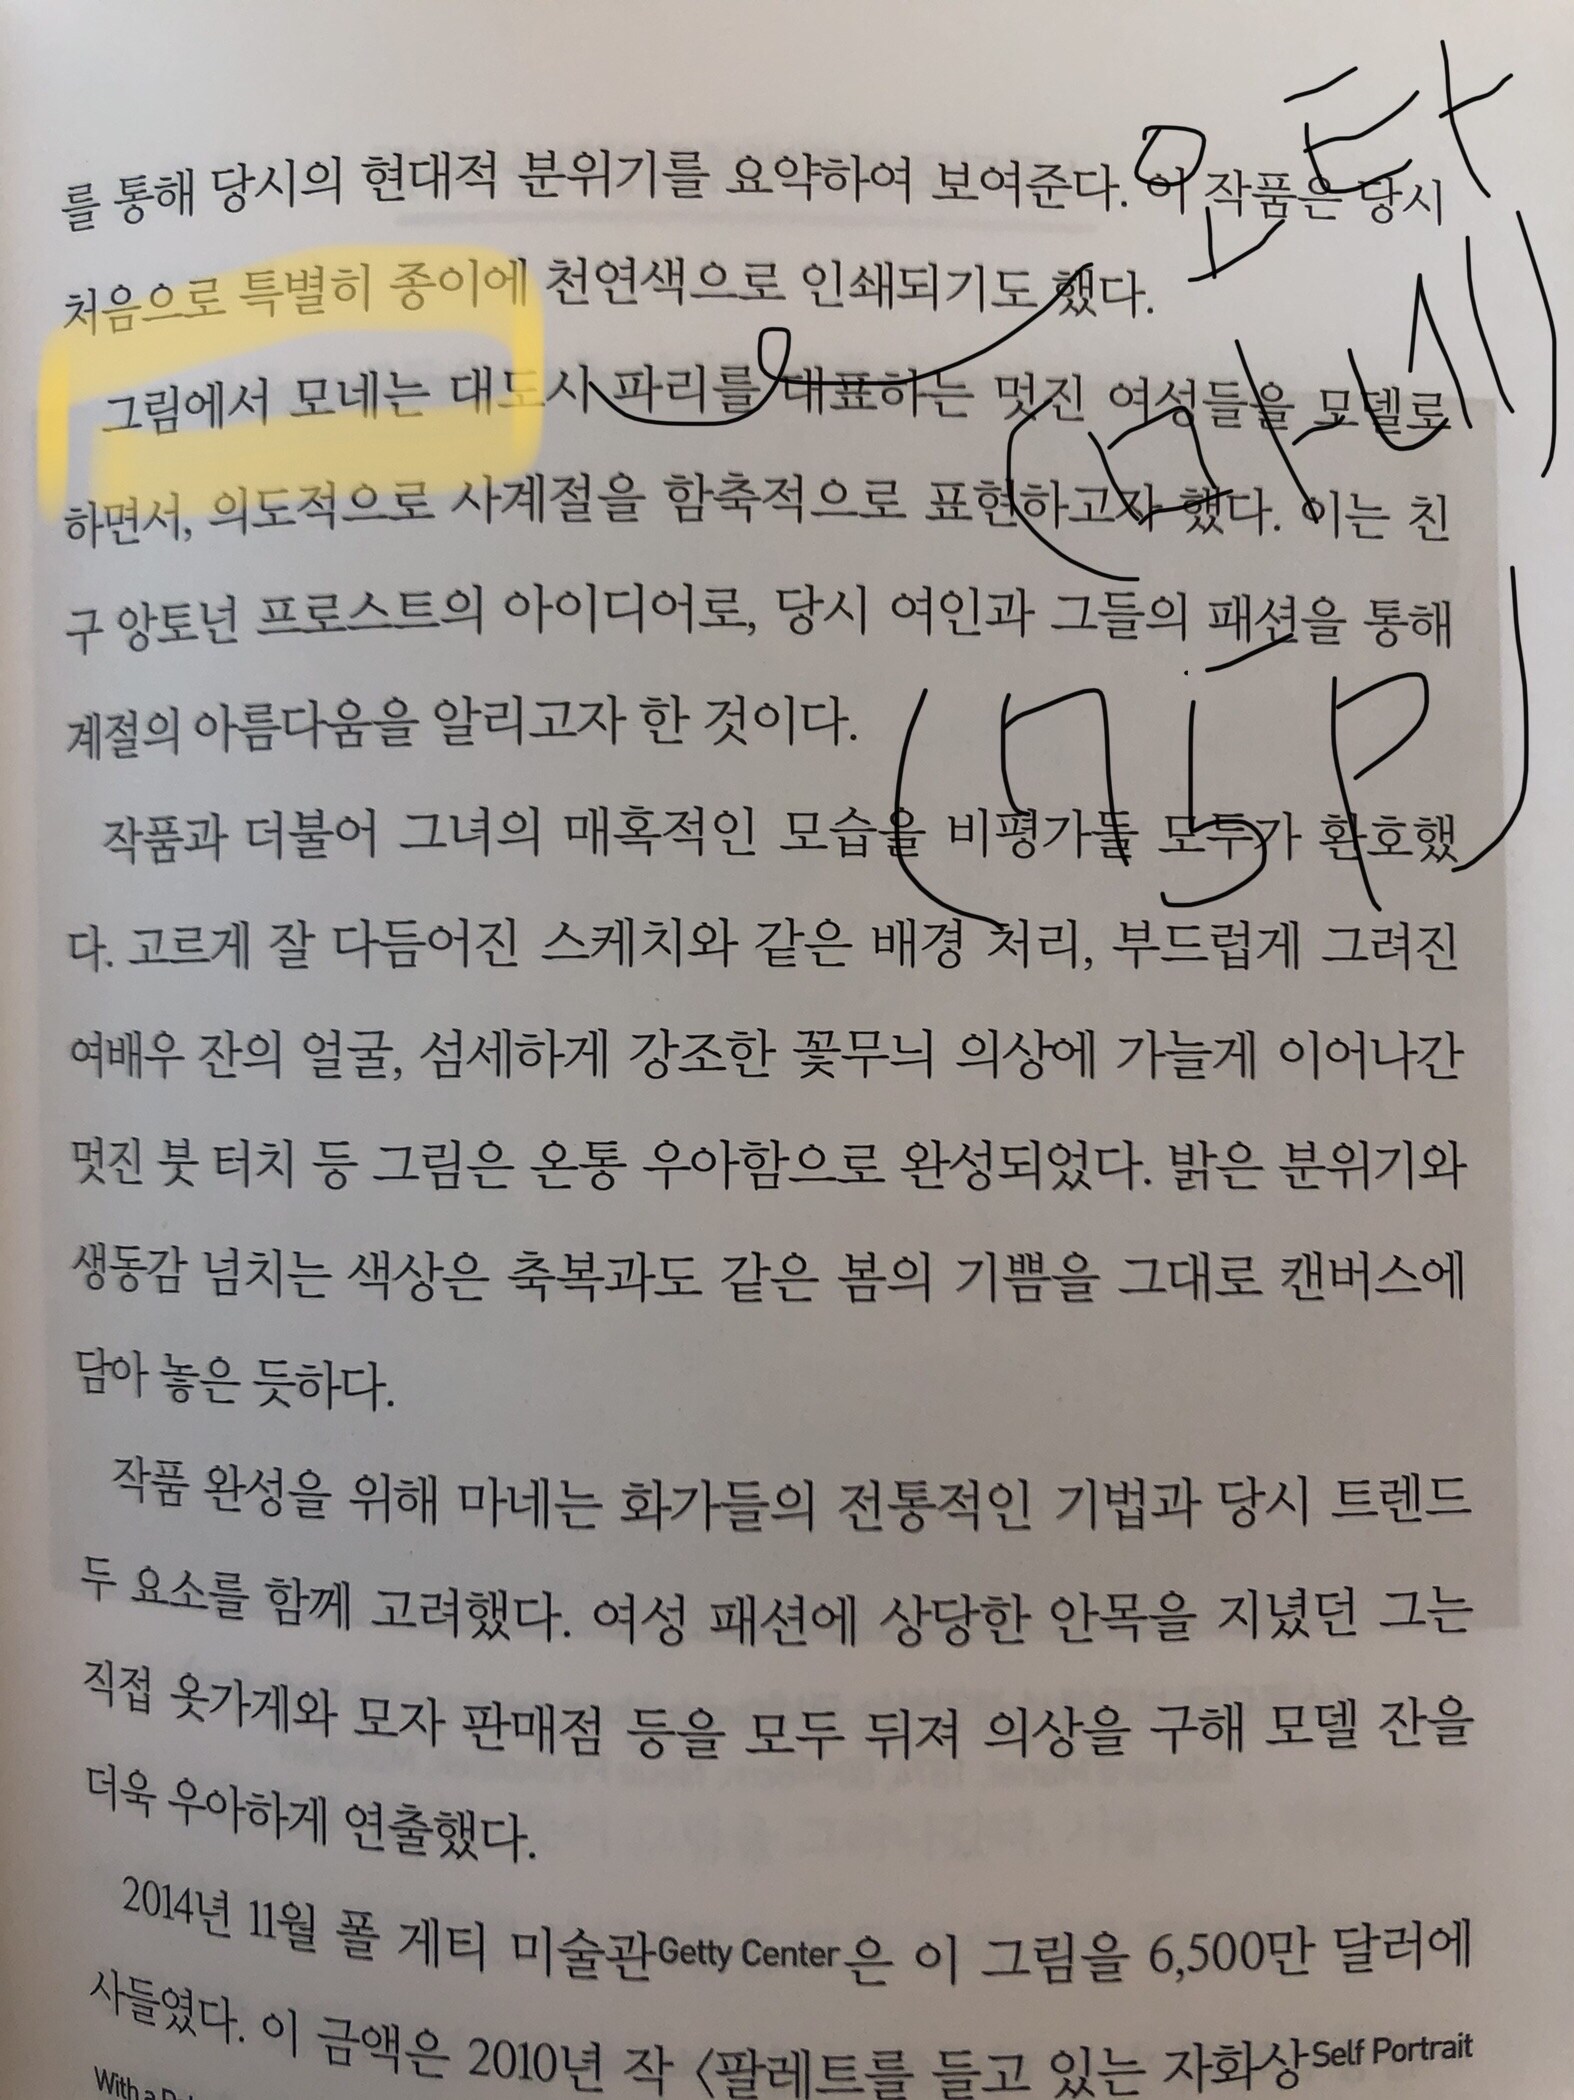 를 통해 당시의 현대적 분위기를 요약하여 보여준다. 이 작품은 당시
처음으로 특별히 종이에 천연색으로 인쇄되기도 했다.
그림에서 모네는 대도시 파리를 대표하는 멋진 여성들을 모델로
하면서, 의도적으로 사계절을 함축적으로 표현하고자 했다. 이는 친
구 앙토넌 프로스트의 아이디어로, 당시 여인과 그들의 패션을 통해
계절의 아름다움을 알리고자 한 것이다.
작품과 더불어 그녀의 매혹적인 모습을 비평가들 모두가 환호했
다. 고르게 잘 다듬어진 스케치와 같은 배경 처리, 부드럽게 그려진
여배우 잔의 얼굴, 섬세하게 강조한 꽃무늬 의상에 가늘게 이어나간
멋진 붓 터치 등 그림은 온통 우아함으로 완성되었다. 밝은 분위기와
생동감 넘치는 색상은 축복과도 같은 봄의 기쁨을 그대로 캔버스에
담아 놓은 듯하다.
작품 완성을 위해 마네는 화가들의 전통적인 기법과 당시 트렌드
두 요소를 함께 고려했다. 여성 패션에 상당한 안목을 지녔던 그는
직접 옷가게와 모자 판매점 등을 모두 뒤져 의상을 구해 모델 잔을
더욱 우아하게 연출했다.
2014년 11월 폴 게티 미술관Getty Center은 이 그림을 6,500만 달러에
사들였다. 이 금액은 2010년 작 〈팔레트를 들고 있는 자화상Self Portrait
With a